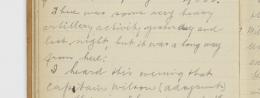 There was some very heavy
artillery activity yesterday and
last night, but it was a long way
from here.
I heard this evening that
captain wilson (adaquent)